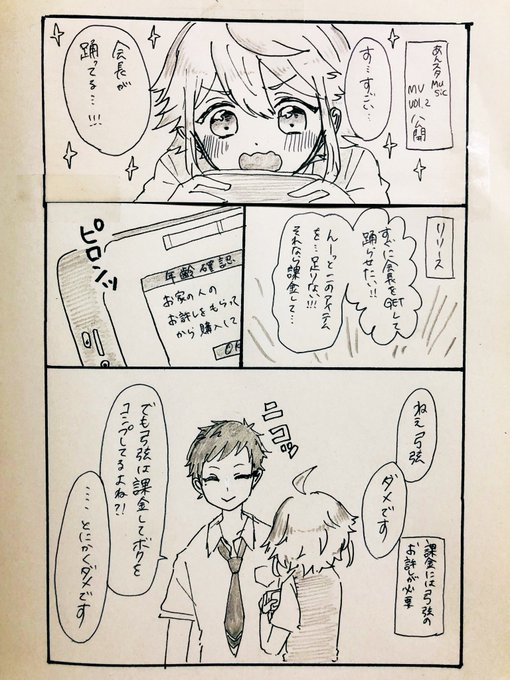 あんスタMusic
MV
VOL.2
公開
す…すごい…
会長が
踊ってる…!!!
リリース
すぐに会長をGETして
踊らせたい!!
んーっとこのアイテム
を…足りない!!!
それなら課金して…
ピロンッ
年齢確認
お家の人の
お許しをもらって
から購入して
OK
ねえ弓弦
ダメです
課金には弓弦の
お許しが必要
ニコッ
でも弓弦は課金してボクを
コンプしてるよね?!
…とにかくダメです